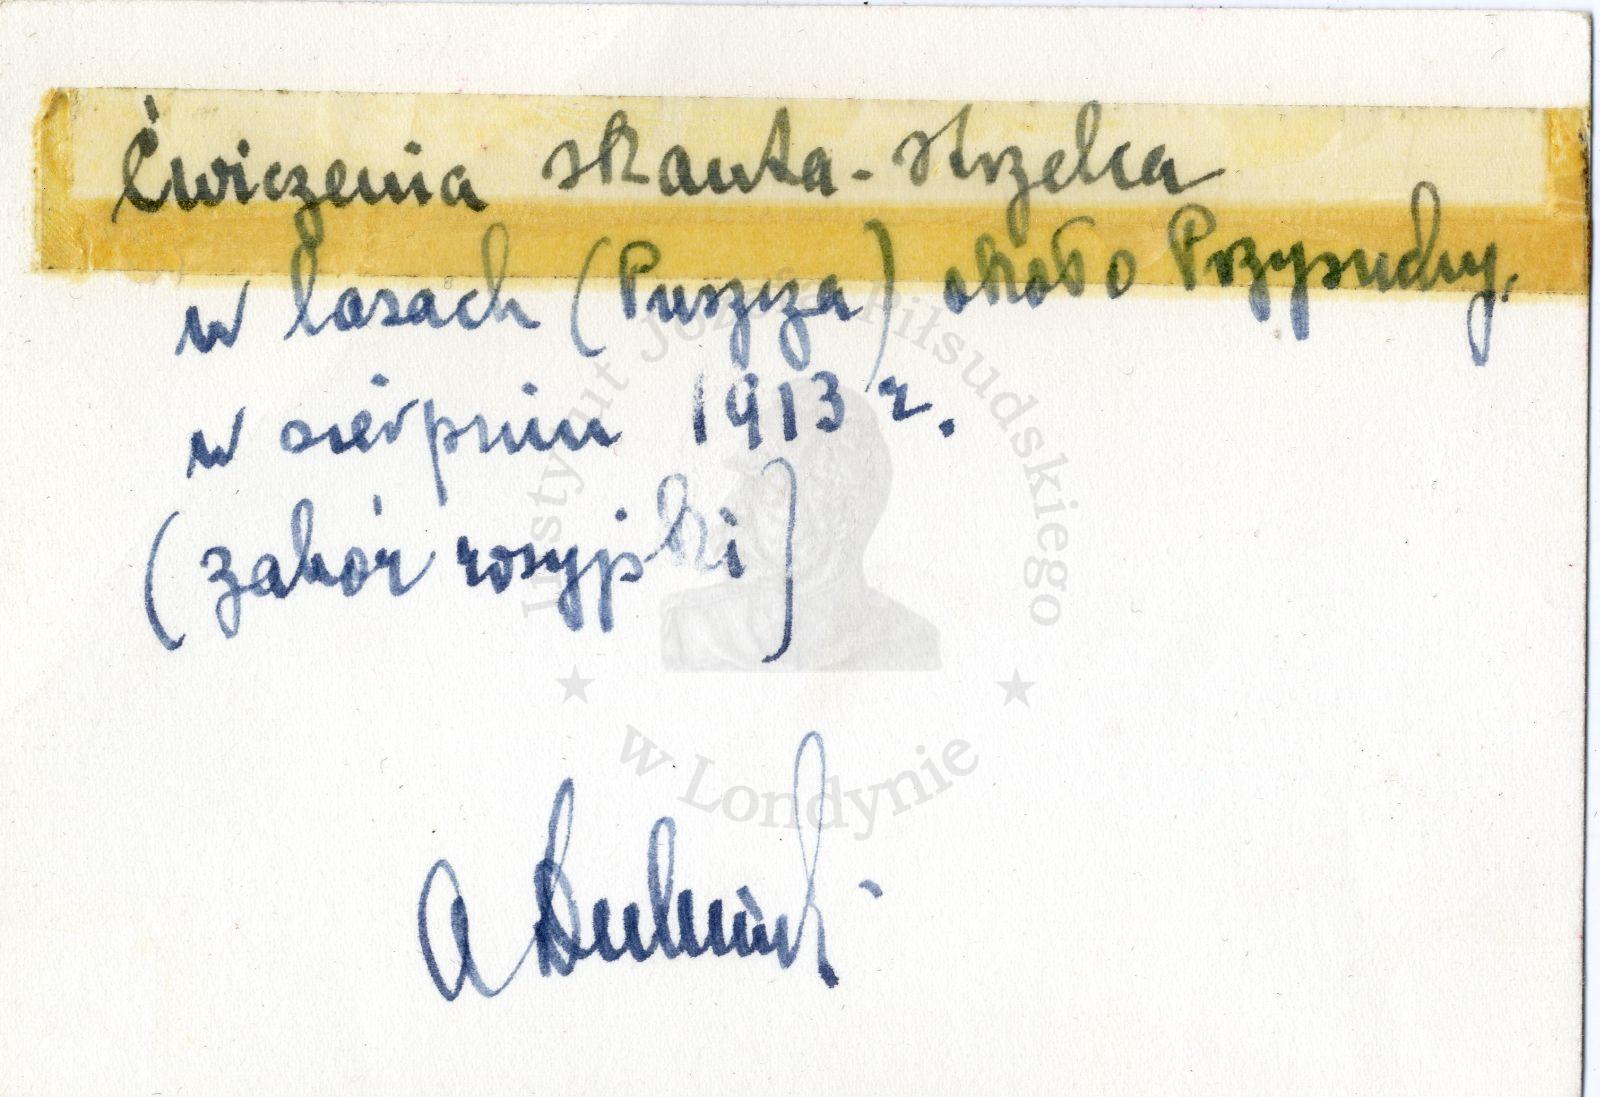 Ćwiczenia skauta-strzelca
w lasach (Puszcza) około Przysuchy.
w sierpniu 1913 r.
(zabór rosyjski)
Instytut Józefa Piłsudskiego
w Londynie
A